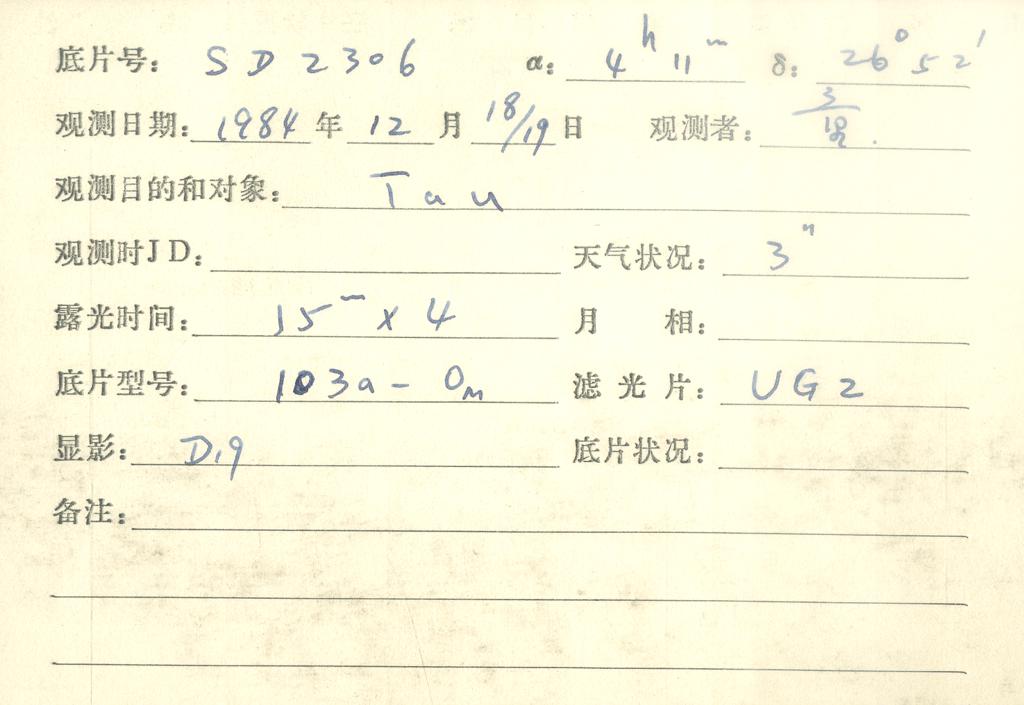 底片号： SD2306 α： 4ʰ 11ᵐ δ： 26° 52′
观测日期： 1984 年 12 月 18/19 日 观测者：
观测目的和对象： Tau
观测时JD： 天气状况： 3"
露光时间： 15ᵐ x 4 月 相：
底片型号： 103a-O 滤光片： UG2
显影： D19 底片状况：
备注：